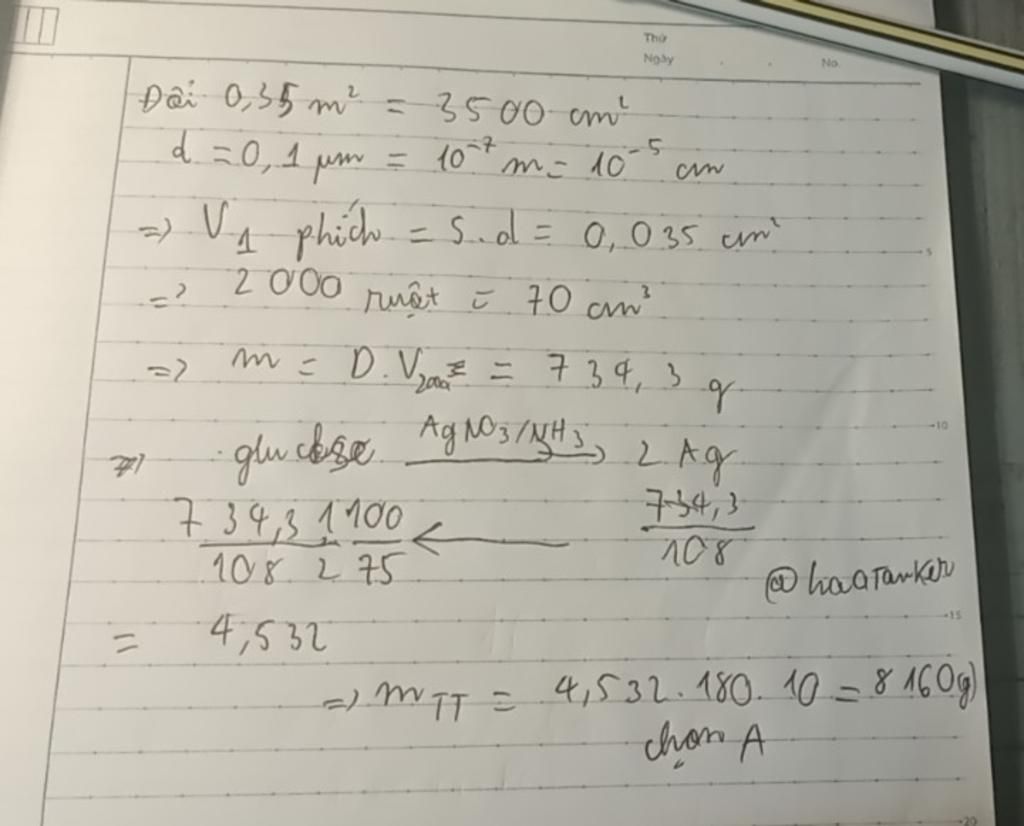 Thứ
Ngày No.
Đổi 0,35 m² = 3500 cm²
d = 0,1 μm = 10⁻⁷ m = 10⁻⁵ cm
=> V₁ phích = S.d = 0,035 cm³
=> 2000 ruột = 70 cm³
=> m = D.V₂₀₀₀ = 734,3 g
=> glucose AgNO₃/NH₃ → 2 Ag
734,3/108 . 1/2 . 100/75 ← 734,3/108
@haaTanker
= 4,532
=> m_TT = 4,532.180.10 = 8160(g)
chọn A
5
10
15
20